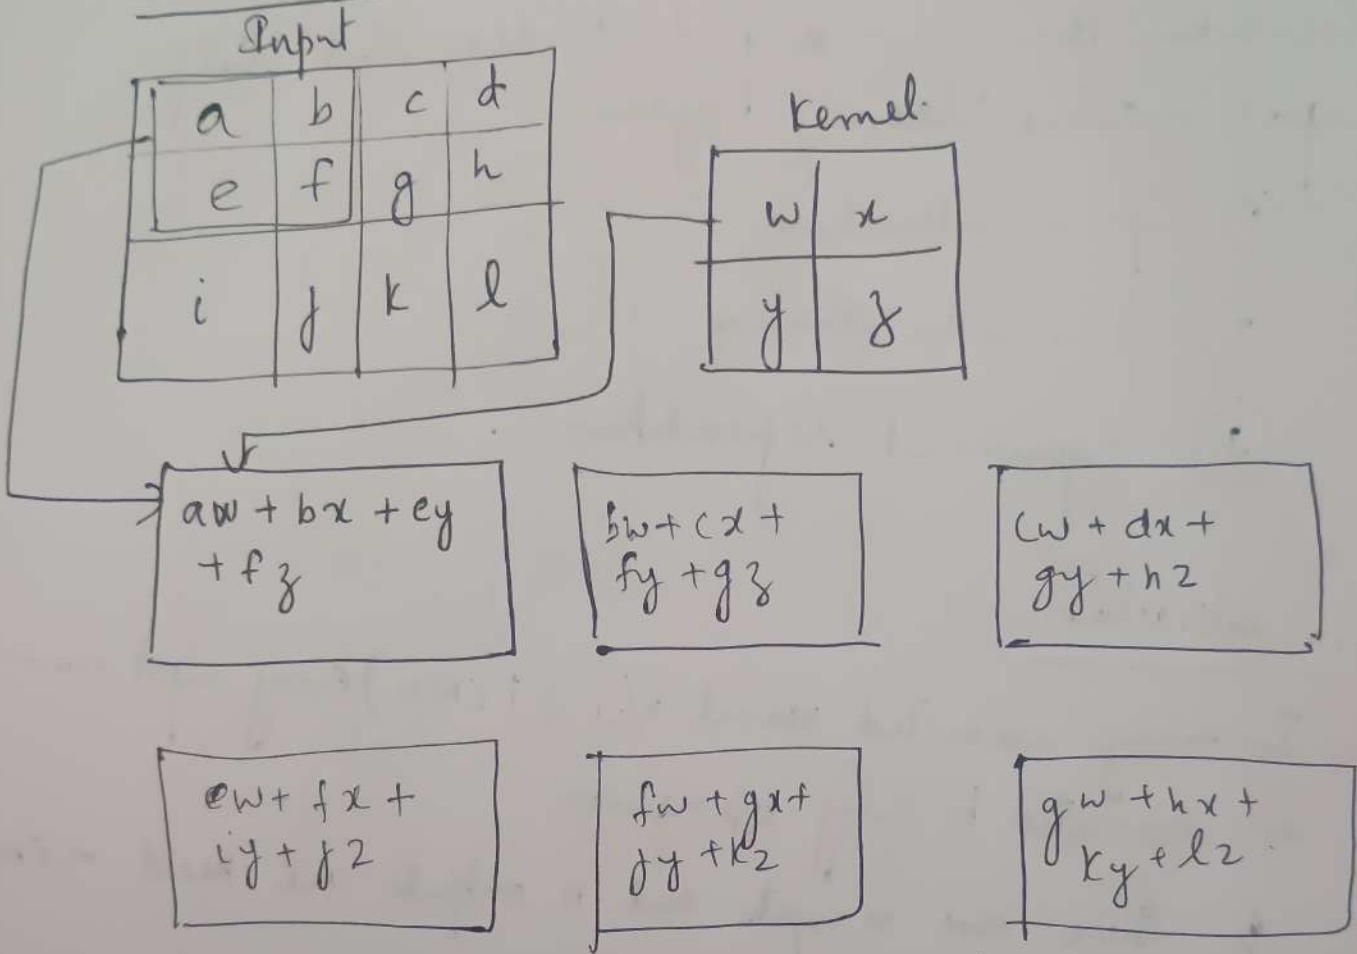 Input
a b c d
e f g h
i j k l
Kernel.
w x
y z
aw + bx + ey
+ fz
bw + cx +
fy + gz
cw + dx +
gy + hz
ew + fx +
iy + jz
fw + gx +
jy + kz
gw + hx +
ky + lz